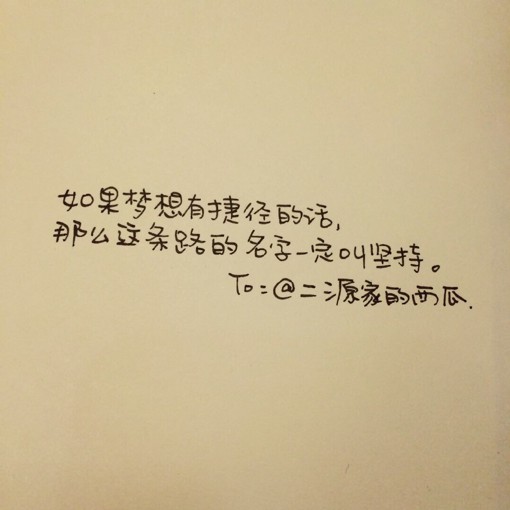 如果梦想有捷径的话,
那么这条路的名字一定叫坚持。
To:@二源家的西瓜.